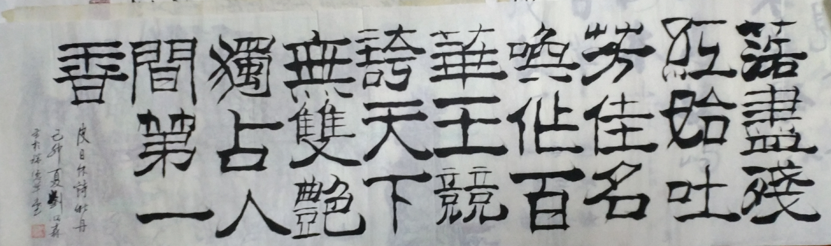 落盡殘
紅始吐
芳佳名
喚作百
華王競
誇天下
無雙艷
獨占人
間第一
香
皮日休詩牡丹
己卯夏劉